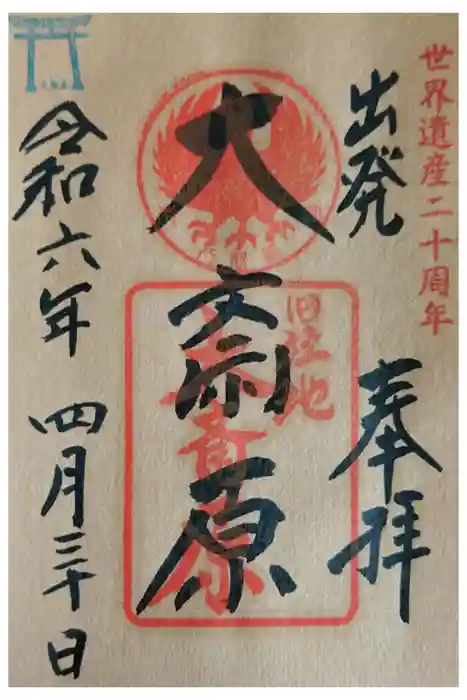 世界遺産二十周年
出発
奉拝
大斎原
旧社地
大斎原
令和六年 四月三十日